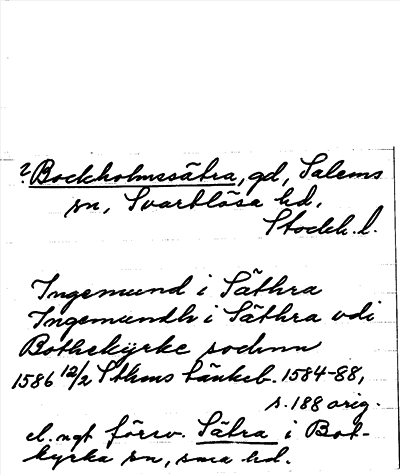 ? Bockholmssätra, gd, Salems
sn, Svartlösa hd,
Stockh. l.
Ingemund i Säthra
Ingemundh i Säthra vdi
Bothekyrke sochnn
1586 12/2 Sthms tänkeb. 1584-88,
s. 188 orig.
el. ngt försv. Sätra i Bot-
kyrka sn, sma hd.